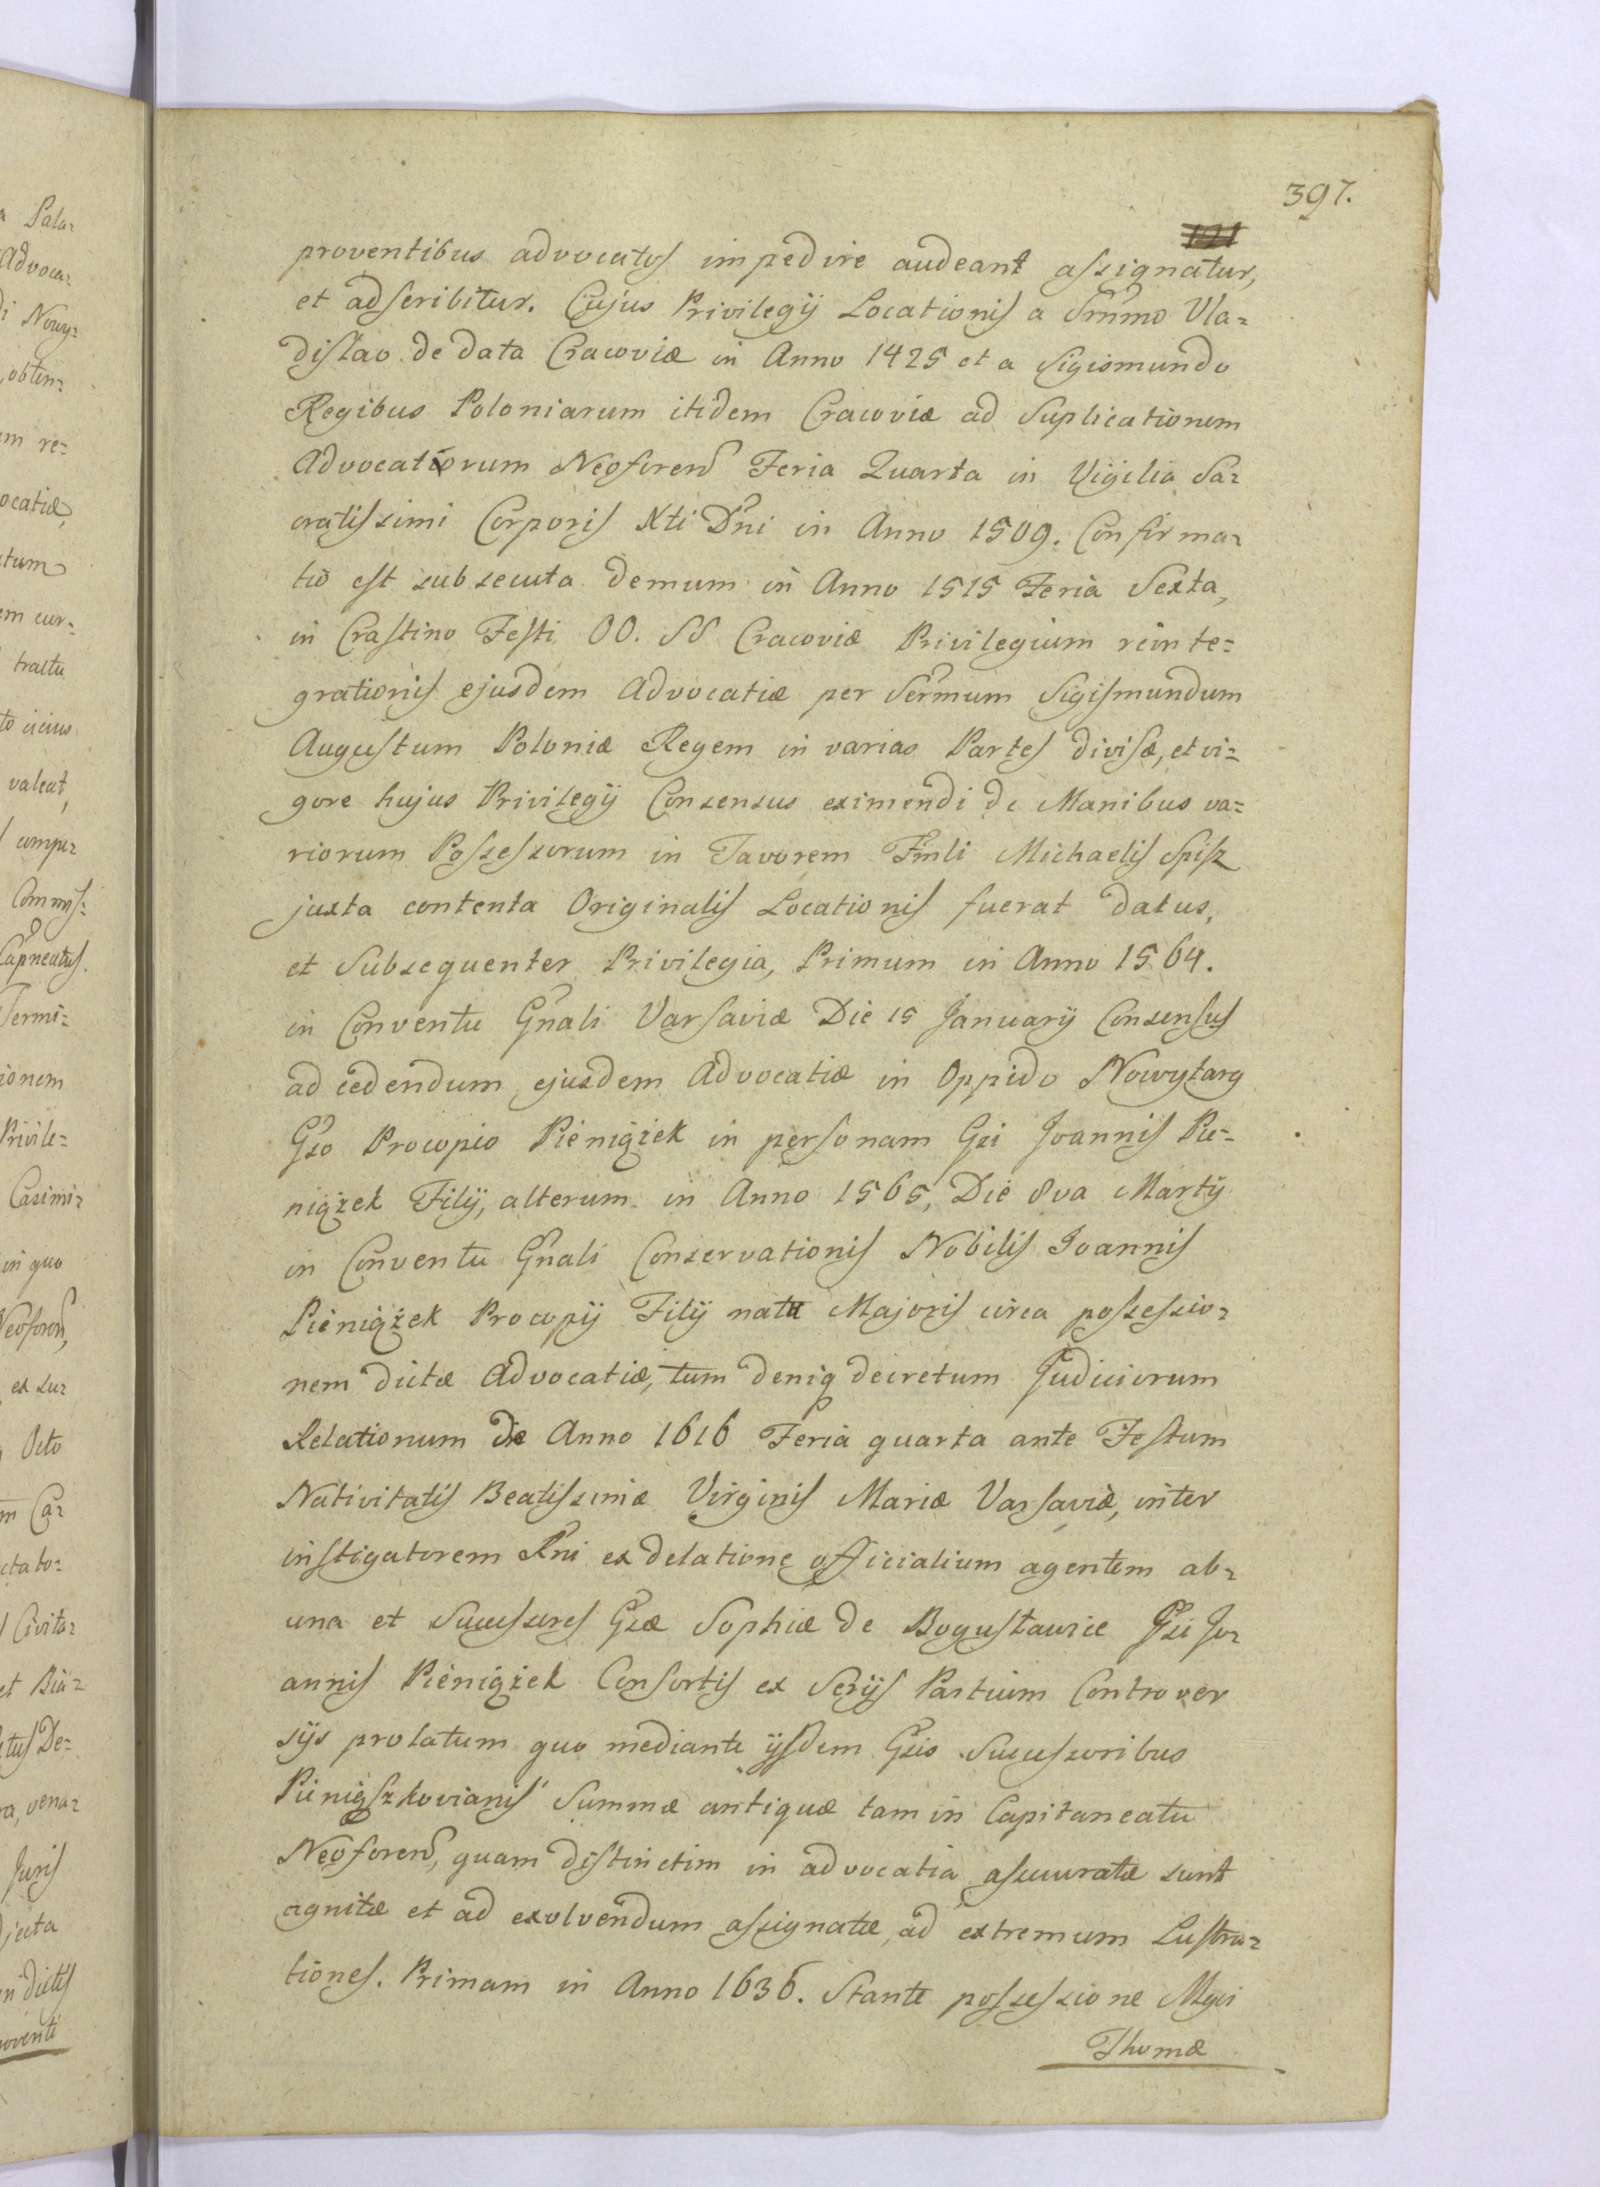 397.
121
proventibus advocatus impedire audeant assignatur,
et adscribitur. Cujus Privilegij Locationis a Srmmo Vla=
dislao de data Cracoviæ in Anno 1425 et a Sigismundo
Regibus Poloniarum itidem Cracoviæ ad Suplicationem
Advocatorum Neoforen Feria Quarta in Vigilia Sa=
cratissimi Corporis Xti Dni in Anno 1509. Confirma=
tio est subsecuta demum in Anno 1515 Feria Sexta,
in Crastino Festi OO. SS Cracoviæ Privilegium reinte=
grationis ejusdem Advocatiæ per Sermum Sigismundum
Augustum Poloniæ Regem in varias Partes divisæ, et vi=
gore hujus Privilegij Consensus eximendi de Manibus va=
riorum Possessorum in Favorem Fmli Michaelis Spisz
juxta contenta Originalis Locationis fuerat datus,
et Subsequenter Privilegia, Primum in Anno 1564.
in Conventu Gnali Varsaviæ Die 15 Januarij Consensus
ad cedendum ejusdem Advocatiæ in Oppido Nowytarg
Gso Procopio Pieniążek in personam Gsi Joannis Pie=
niążek Filij, alterum in Anno 1565, Die 8va Martij
in Conventu Gnali Conservationis Nobilis Joannis
Pieniążek Procopij Filij natu Majoris circa possessio=
nem dictæ Advocatiæ, tum deniq decretum Judiciorum
Relationum de Anno 1616 Feria quarta ante Festum
Nativitatis Beatissimæ Virginis Mariæ Varsaviæ, inter
instigatorem Rni ex delatione officialium agentem ab=
una et Sucessores Gsæ Sophiæ de Bogusławice Gsi Jo=
annis Pieniążek Consortis ex Serijs Partium Controver
sijs prolatum quo mediante ijsdem Gsis Sucessoribus
Pieniąszkovianis Summæ antiquæ tam in Capitaneatu
Neoforen, quam distinctim in advocatia ascuuratæ sunt
agnitæ et ad exolvendum assignatæ, ad extremum Lustra=
tiones. Primam in Anno 1636. Stante possessione Mgci
Thomæ